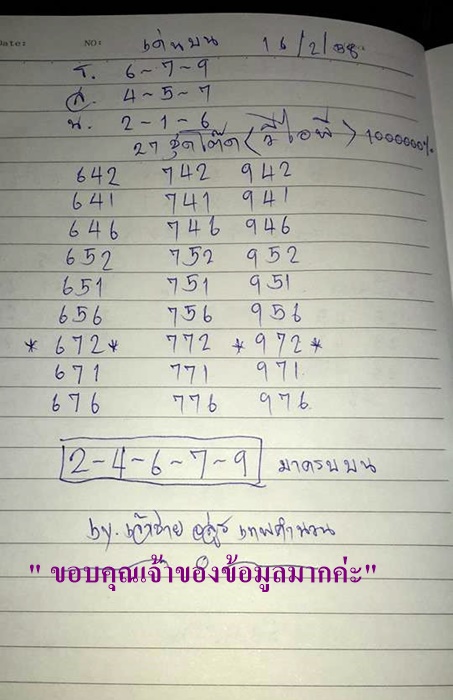 Date: NO: เด่นบน 16/2/58
ร. 6-7-9
ส. 4-5-7
น. 2-1-6
27 ชุดโต๊ด (วีไอพี) 1000000%
642 742 942
641 741 941
646 746 946
652 752 952
651 751 951
656 756 956
*672* 772 *972*
671 771 971
676 776 976
2-4-6-7-9 มาครบบน
by. เจ้าชาย สูตร เทพคำนวน
" ขอบคุณเจ้าของข้อมูลมากค่ะ"